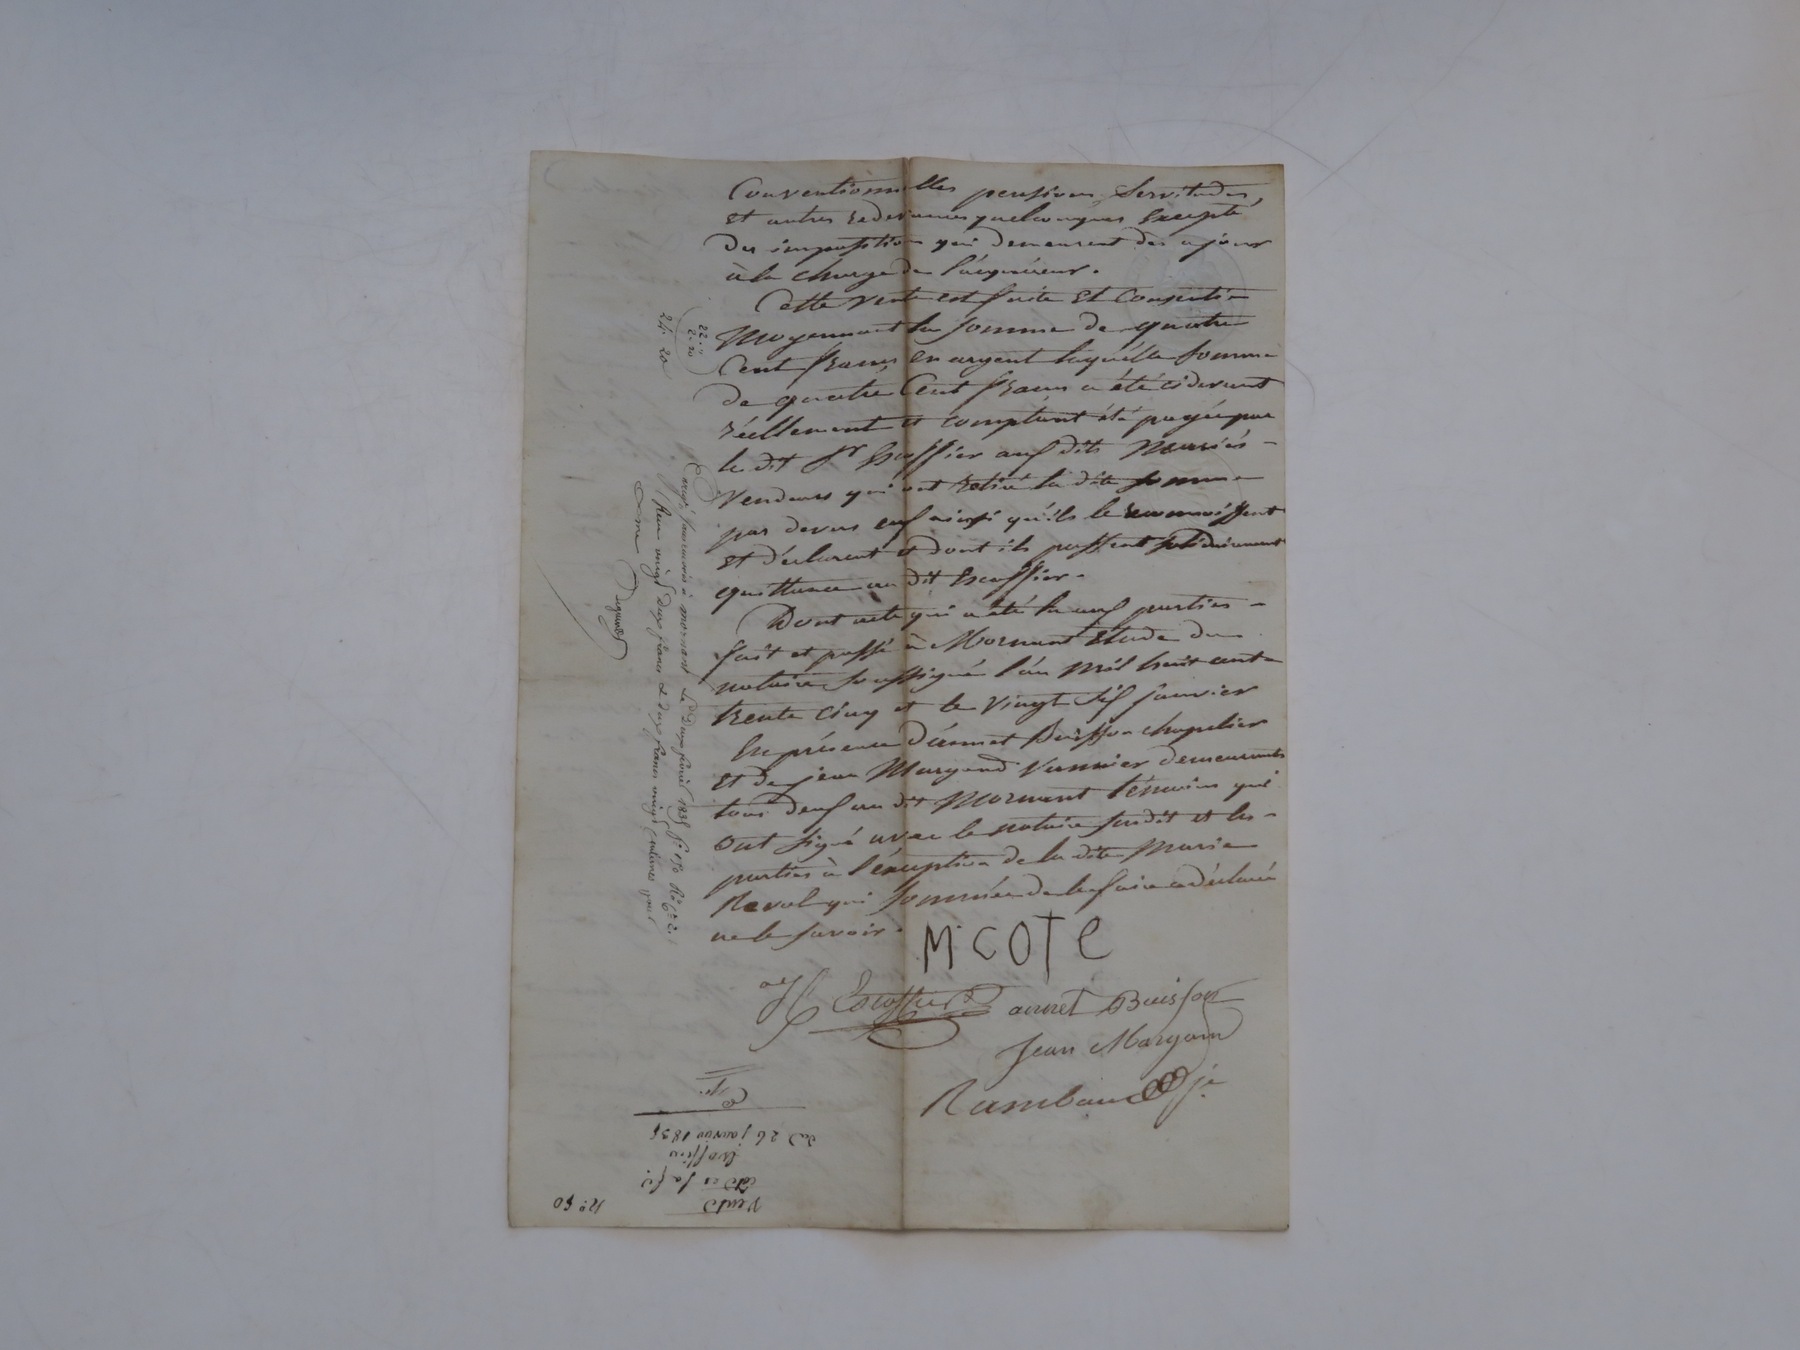 Conventionnelles pensions, Servitudes,
et autres redevances quelconques Excepté
des impositions qui demeurent dès ajour
à la charge de l'acquéreur.
Cette vente est faite et Consentie
Moyennant la somme de quatre
Cent francs en argent laquelle somme
de quatre Cent francs a été cidevant
réellement et comptant été payée par
le dit Sr Escoffier aux dits Mariés
Vendeurs qui ont retiré la dite somme
par devers eux ainsi qu'ils le reconnoissent
et déclarent et dont ils passent solidairement
quittance au dit Escoffier.
Dont acte qui a été lu aux parties
fait et passé à Mornant Etude du
notaire soussigné l'an mil huit cent
trente cinq et le vingt six janvier
En présence d'annet Buisson chapelier
et de jean Margand Vannier demeurants
tous deux au dit Mornant témoins qui
ont signé avec le notaire susdit et les
parties à l'exception de la dite Marie
Revol qui sommée de le faire a déclaré
ne le savoir.
M. COTE
Escoffier annet Buisson
Jean Margam
Rambaud je
22.
2. 20
24. 20
à mornant Le Deux février 1835 f° 150 R° C. 2.
Reçu vingt deux francs et deux francs vingt centimes pour
N° 50
Vente
Coté à sa f.
Escoffier
du 26 janvier 1835